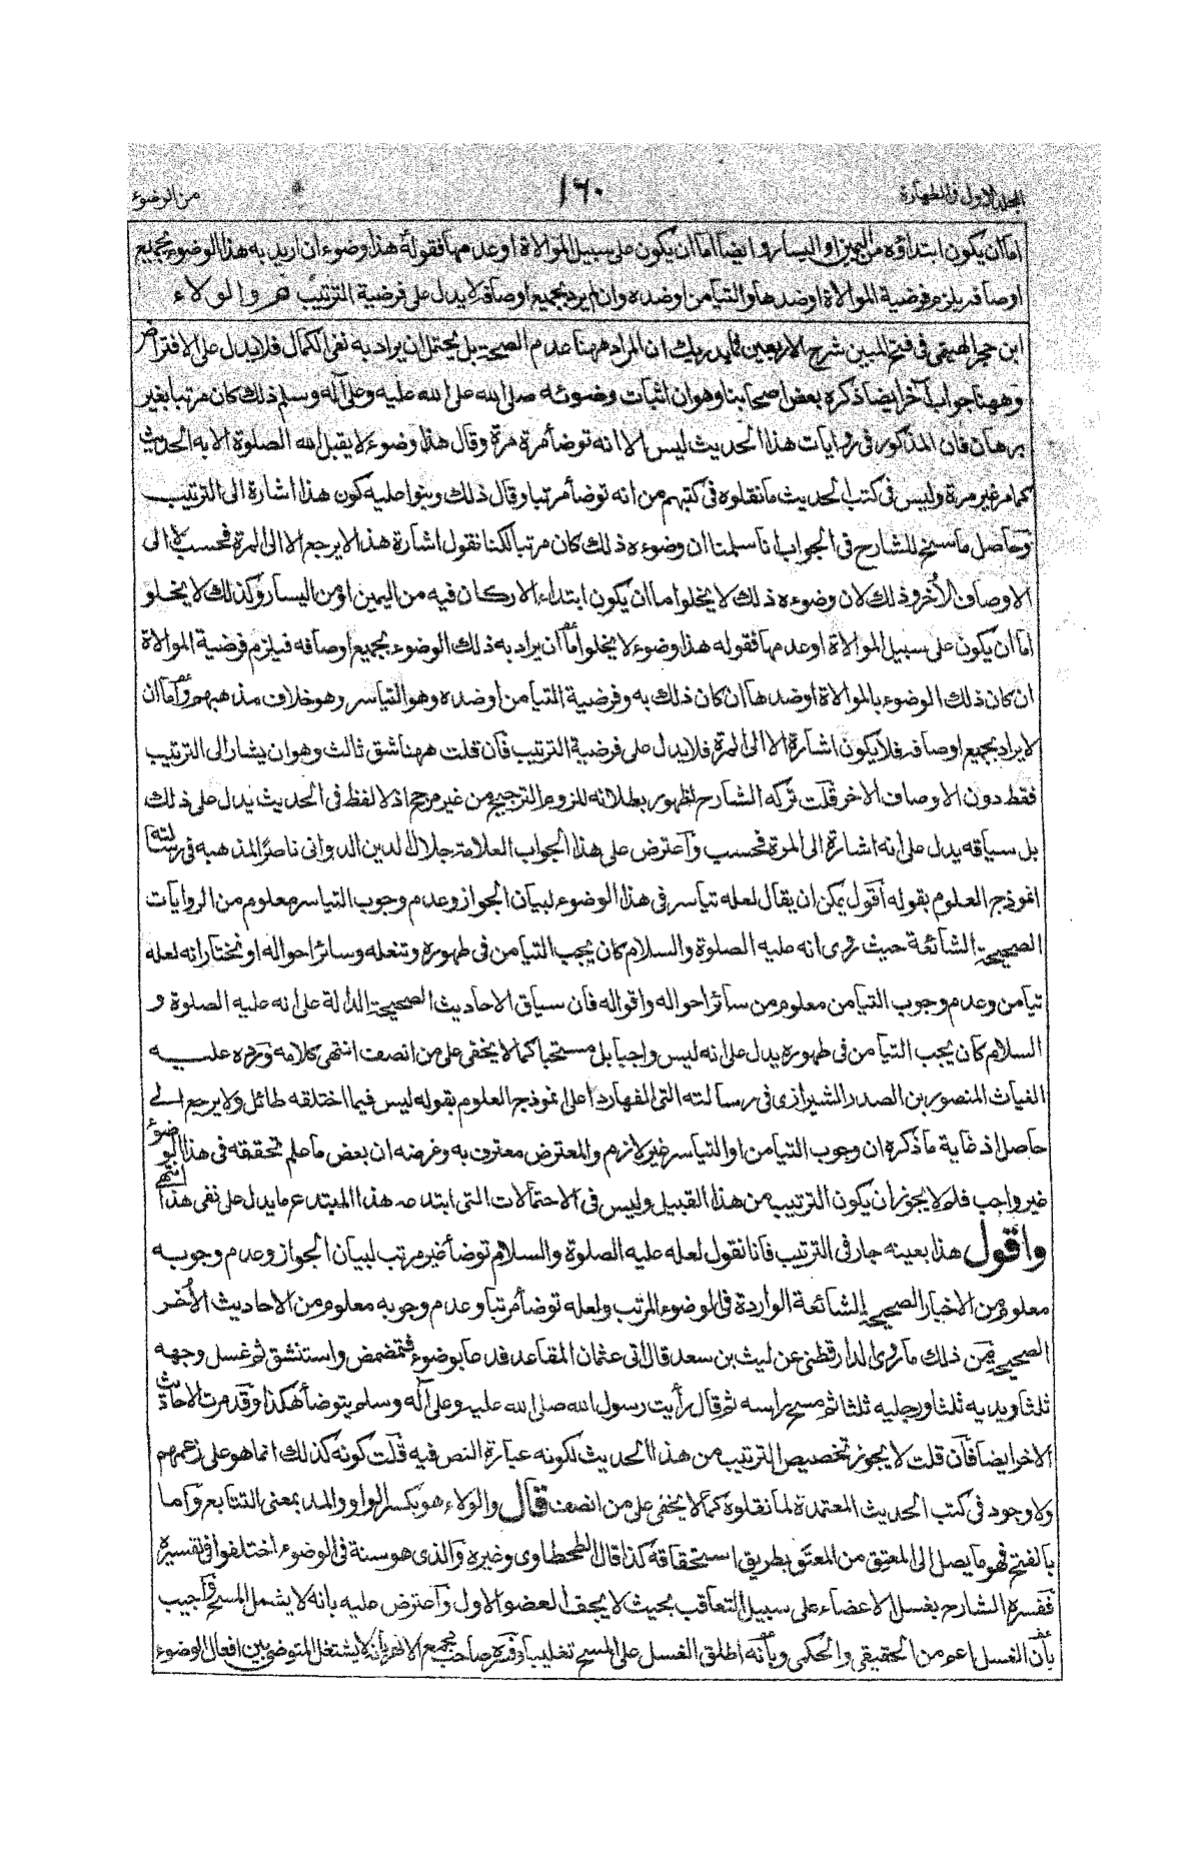 المجلد الاول فى الطهارة
١٦٠
من الوضوء
اما ان يكون ابتداؤه من اليمين او اليسار وايضا اما ان يكون على سبيل الموالاة او عدمها فقوله هذا وضوء ان اريد به هذا الوضوء بجميع
اوصافه يلزم فرضية الموالاة او ضدها والتيامن او ضده وان لم يرد بجميع اوصافه لا يدل على فرضية الترتيب هر والولاء
ابن حجر الهيتمى فى فتح المبين شرح الاربعين فما يدريك ان المراد ههنا عدم الصحة بل يحتمل ان يراد به نفى الكمال فلا يدل على الافتراض
وههنا جواب آخر ايضا ذكره بعض اصحابنا وهو ان اثبات وضوئه صلى الله عليه وعلى آله وسلم ذلك كان مرتبا بغير
برهان فان المذكور فى روايات هذا الحديث ليس الا انه توضأ مرة مرة وقال هذا وضوء لا يقبل الله الصلوة الا به الحديث
كما مر غير مرة وليس فى كتب الحديث ما نقلوه فى كتبهم من انه توضأ مرتبا وقال ذلك وبنوا عليه كون هذا اشارة الى الترتيب
وحاصل ما سنح للشارح فى الجواب انا سلمنا ان وضوءه ذلك كان مرتبا لكنا نقول اشارة هذا لا يرجع الا الى المرة فحسب لا الى
الاوصاف الأخر وذلك لان وضوءه ذلك لا يخلو اما ان يكون ابتداء الاركان فيه من اليمين او من اليسار وكذلك لا يخلو
اما ان يكون على سبيل الموالاة او عدمها فقوله هذا وضوء لا يخلو اما ان يراد به ذلك الوضوء بجميع اوصافه فيلزم فرضية الموالاة
ان كان ذلك الوضوء بالموالاة او ضدها ان كان ذلك به وفرضية التيامن او ضده وهو التياسر وهو خلاف مذهبهم واما ان
لا يراد بجميع اوصافه فلا يكون اشارة الا الى المرة فلا يدل على فرضية الترتيب فان قلت ههنا شق ثالث وهو ان يشار الى الترتيب
فقط دون الاوصاف الاخر قلت تركه الشارح لظهور بطلانه للزوم الترجيح من غير مرجح اذ لا لفظ فى الحديث يدل على ذلك
بل سياقه يدل على انه اشارة الى المرة فحسب واعترض على هذا الجواب العلامة جلال الدين الدوانى ناصرا لمذهبه فى رسالته
انموذج العلوم بقوله أقول يمكن ان يقال لعله تياسر فى هذا الوضوء لبيان الجواز وعدم وجوب التياسر معلوم من الروايات
الصحيحة الشائعة حيث روى انه عليه الصلوة والسلام كان يحب التيامن فى طهوره وتنعله وسائر احواله او نختار انه لعله
تيامن وعدم وجوب التيامن معلوم من سائر احواله واقواله فان سياق الاحاديث الصحيحة الدالة على انه عليه الصلوة و
السلام كان يحب التيامن فى طهوره يدل على انه ليس واجبا بل مستحبا كما لا يخفى على من انصف انتهى كلامه ورده عليه
الغياث المنصور بن الصدر الشيرازى فى رسالته التى الفها ردا على نموذج العلوم بقوله ليس فيما اختلقه طائل ولا يرجع الى
حاصل اذ غاية ما ذكره ان وجوب التيامن او التياسر غير لازم والمعترض معترف به وغرضه ان بعض ما علم تحققه فى هذا الوضوء
غير واجب فلم لا يجوز ان يكون الترتيب من هذا القبيل وليس فى الاحتمالات التى ابتدعه هذا المبتدع ما يدل على نفى هذا انتهى
واقول هذا بعينه جار فى الترتيب فانا نقول لعله عليه الصلوة والسلام توضأ غير مرتب لبيان الجواز وعدم وجوبه
معلوم من الاخبار الصحيحة الشائعة الواردة فى الوضوء المرتب ولعله توضأ مرتبا وعدم وجوبه معلوم من الاحاديث الأخر
الصحيحة فمن ذلك ما روى الدارقطنى عن ليث بن سعد قال اتى عثمان المقاعد فدعا بوضوء فتمضمض واستنشق ثم غسل وجهه
ثلثا ويديه ثلثا ورجليه ثلثا ثم مسح راسه ثم قال رأيت رسول الله صلى الله عليه وعلى آله وسلم يتوضأ هكذا وقد مرت الاحاديث
الاخر ايضا فان قلت لا يجوز تخصيص الترتيب من هذا الحديث لكونه عبارة النص فيه قلت كونه كذلك انما هو على زعمهم
ولا وجود فى كتب الحديث المعتمدة لما نقلوه كما لا يخفى على من انصف قال والولاء هو بكسر الواو والمد بمعنى التتابع واما
بالفتح فهو ما يصل الى المعتِق من المعتَق بطريق استحقاقه كذا قال الطحطاوى وغيره والذى هو سنة فى الوضوء اختلفوا فى تفسيره
ففسره الشارح بغسل الاعضاء على سبيل التعاقب بحيث لا يجف العضو الاول واعترض عليه بانه لا يشمل المسح واجيب
بأن الغسل اعم من الحقيقى والحكمى وبأنه اطلق الغسل على المسح تغليبا وفسره صاحب مجمع الانهر بانه لا يشتغل المتوضى بين افعال الوضوء